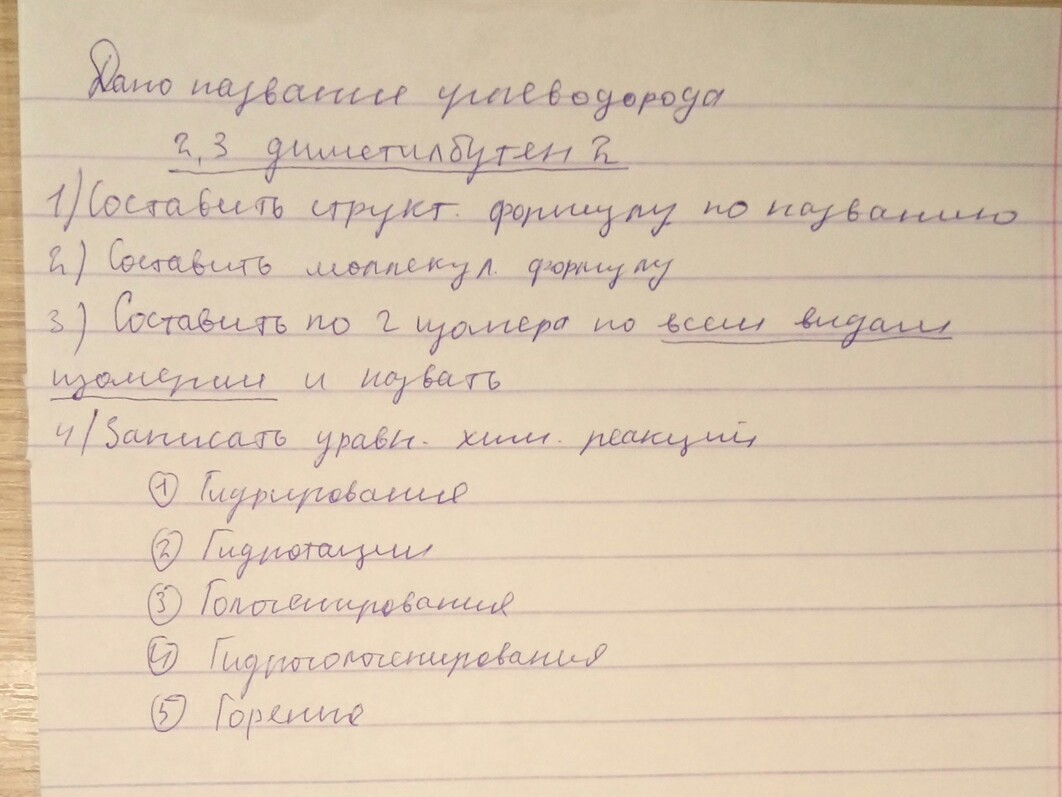 Дано название углеводорода
2,3 диметилбутен 2
1) Составить структ. формулу по названию
2) Составить моллекул. формулу
3) Составить по 2 изомера по всем видам
изомерии и назвать
4) Записать уравн. хим. реакций
① Гидрирования
② Гидротации
③ Гологенирования
④ Гидрогологенирования
⑤ Горение